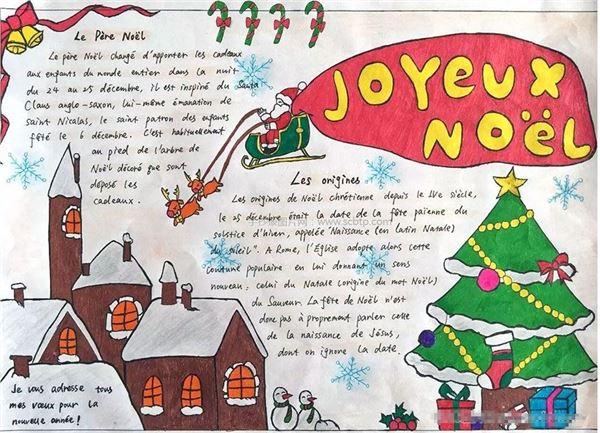 Le Père Noël
Le père Noël chargé d'apporter les cadeaux
aux enfants du monde entier dans la nuit
du 24 au 25 décembre, il est inspiré du Santa
Claus anglo-saxon, lui-même émanation de
saint Nicolas, le saint patron des enfants
fêté le 6 décembre. C'est habituellement
au pied de l'arbre de
Noël décoré que sont
déposé les
cadeaux.
JOYEUX
NOËL
Les origines
Les origines de Noël chrétienne depuis le IVe siècle,
le 25 décembre était la date de la fête païenne du
solstice d'hiver, appelée "Naissance (en latin Natale)
du soleil". A Rome, l'Église adopte alors cette
coutume populaire en lui donnant un sens
nouveau: celui du Natale (origine du mot Noël)
du Sauveur. La fête de Noël n'est
donc pas à proprement parler celle
de la naissance de Jésus,
dont on ignore la date.
www.scbtp.com
Je vous adresse tous
mes vœux pour la
nouvelle année!